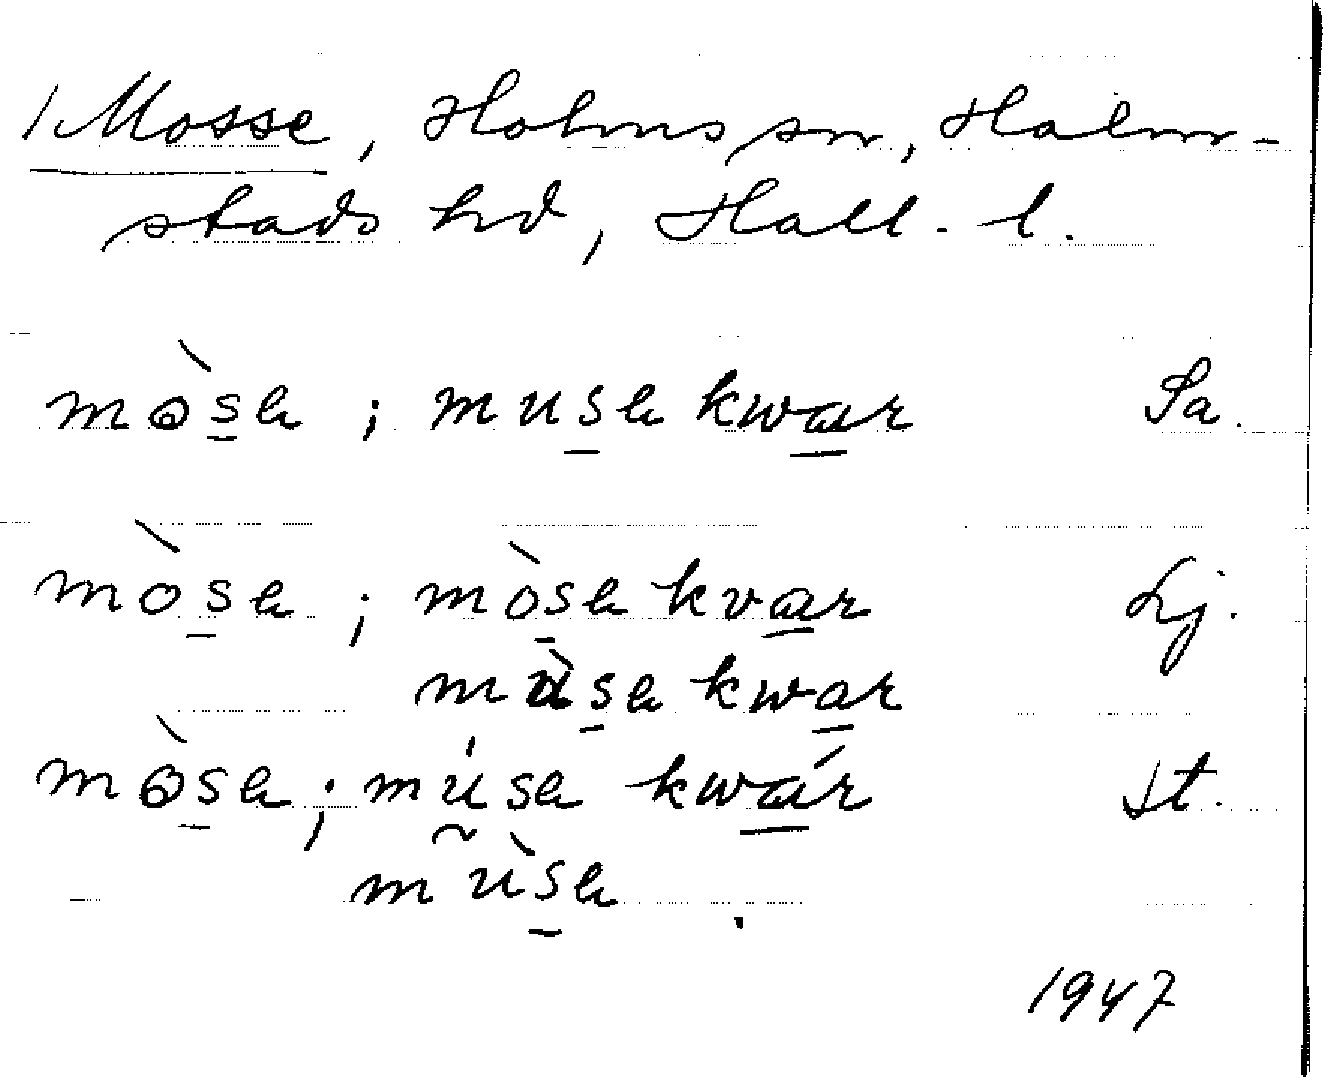 1 Mosse, Holms sn, Halm-
stads hd, Hall. l.
mòsa ; musa kwar Sa.
mòsa ; mòsa kvar Lj.
mùsa kwar
mòsa ; músa kwár St.
mùsa
1947